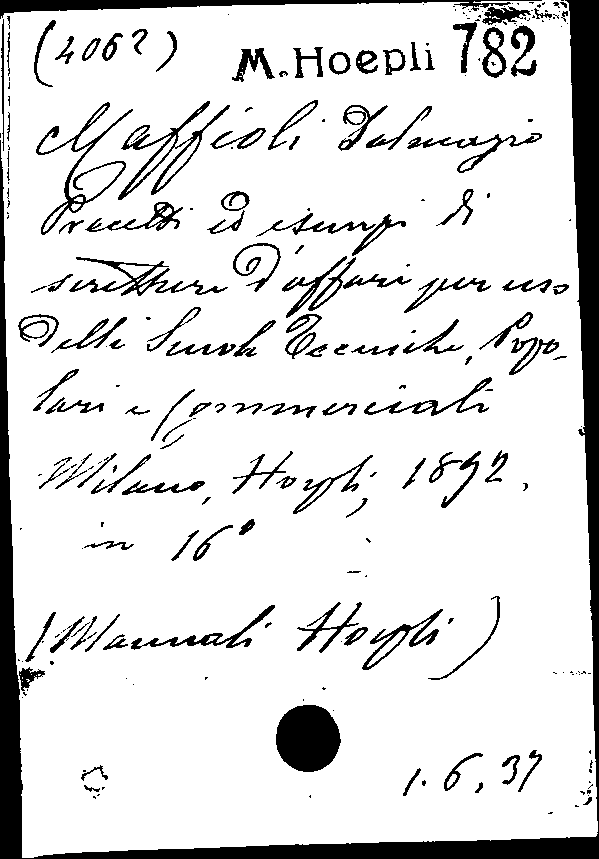 (4062) M. Hoepli 782
Maffioli Dalmazio
Precetti ed esempi di
scritture d'affari per uso
delle Scuole Tecniche, Popo-
lari e Commerciali
Milano, Hoepli, 1892.
in 16°
(Manuali Hoepli)
1.6.37